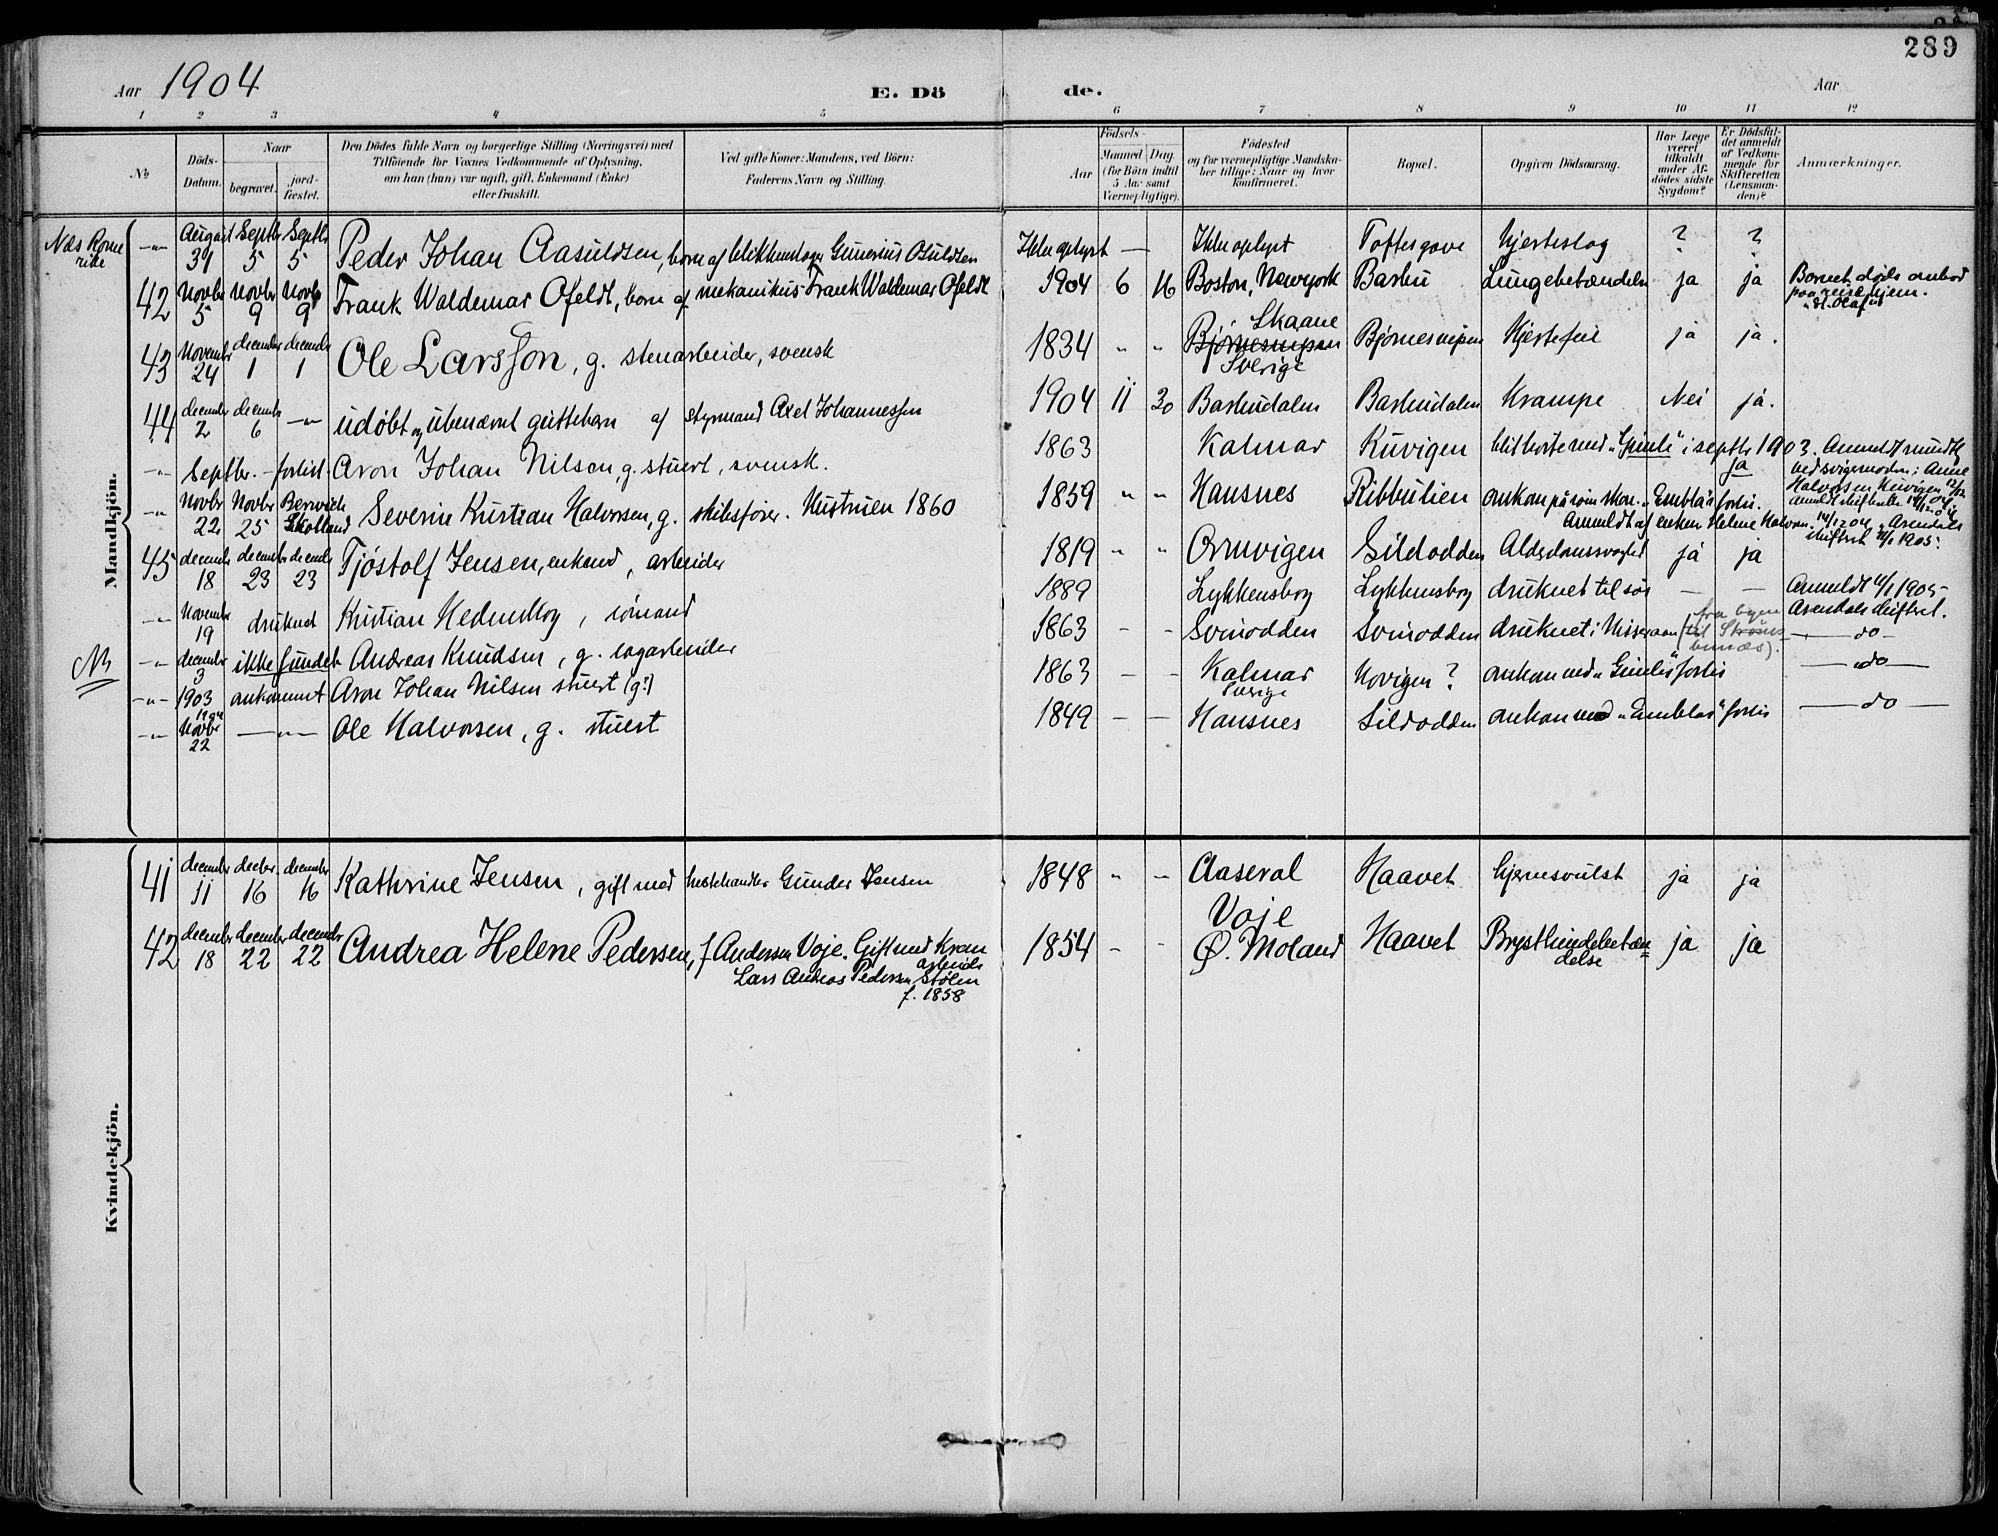 289
Aar 1904 E. Dö de. Aar
1 2 3 4 5 6 7 8 9 10 11 12
No
Döds-Datum.
Naar
begravet.
jord-fæstet.
Den Dödes fulde Navn og borgerlige Stilling (Næringsvei) med
Tilföiende for Voxnes Vedkommende af Oplysning,
om han (hun) var ugift, gift, Enkemand (Enke)
eller fraskilt.
Ved gifte Koner: Mandens, ved Börn:
Faderens Navn og Stilling.
Födsels-
Aar
Maaned Dag
(for Börn indtil
5 Aar samt
Værnepligtige).
Födested
og for værnepligtige Mandska-
ber tillige: Naar og hvor
konfirmeret.
Bopæl.
Opgiven Dödsaarsag.
Har Læge
været
tilkaldt
under Af-
dödes sidste
Sygdom?
Er Dödsfal-
det anmeldt
af Vedkom-
mende for
Skifteretten
(Lensman-
den)?
Anmærkninger.
Mandkjön.
-"- August 31 Septbr 5 Septbr 5 Peder Johan Aasuldsen, barn af Ikke oplyst — Ikke oplyst hjerteslag ? ?
42 Novbr 5 Novbr 9 Novbr 9 Frank Waldemar Ofeldt, barn af mekanikus Frank Waldemar Ofeldt 1904 6 16 Boston, Newyork Barbu Lungebetændelse ja ja Barnet døde ombord
paa reise hjem.
43 November 24 december 1 december 1 Ole Larsson, g. stenarbeider, svensk 1834 " " Skaane
Sverige Hjertefeil ja ja.
44 december 2 december 6 -"- udøbt og ubenævnt guttebarn af styrmand Axel Johannessen 1904 11 30 Barbudalen Barbudalen Krampe Nei ja.
-"- Septbr. - forlist Aron Johan Nilsen, g. stuert, svensk. 1863 Kalmar Kuvigen i septbr 1903. Anmeldt
ja
-"- Novbr 22 Novbr 25 Berwick
Skotland Severin Kristian Halvorsen, g. skibsfører. Hustruen 1860 1859 " " Hansnes Ribbulien
Anmeldt af enken Helene
45 december 18 december 23 december 23 Tjøstolf Jensen, enkemd, arbeider 1819 " " Ormvigen Sildodden Alderdomssvaghed ja ja
-"- November 19 druknet Kristian Hedenskog, sømand 1889 Lykkensborg Lykkensborg druknet til søs — — Anmeldt 1905
Arendals skifteret.
NB -"- december 3 ikke fundet Andreas Knudsen, g. sagarbeider 1863 - - Svinodden Svinodden druknet i Nisseraan (fra byen
til -"- do -
-"- 1903 ankommet Aron Johan Nilsen stuert (g?) 1863 - - Kalmar
Sverige Hovigen? omkom med „Gimle" forlis -"- do -
-"- 1904 Novbr 22 -"- Ole Halvorsen, g. stuert 1849 - - Hansnes Sildodden omkom med „Embla" forlis - do -
Kvindekjön.
41 december 11 decbr. 16 december 16 Kathrine Jensen, gift med hestehandler Gunder Jensen 1848 " - Aaseral Haavet hjernesvulst ja ja
42 december 18 december 22 december 22 Andrea Helene Pedersen, f. Andersen Voje. Gift med Kran
arbeider
Lars Andreas Pedersen Stølen
f. 1858 1854 - - Voje
Ø. Moland Haavet Brysthindebetæn=
delse ja ja